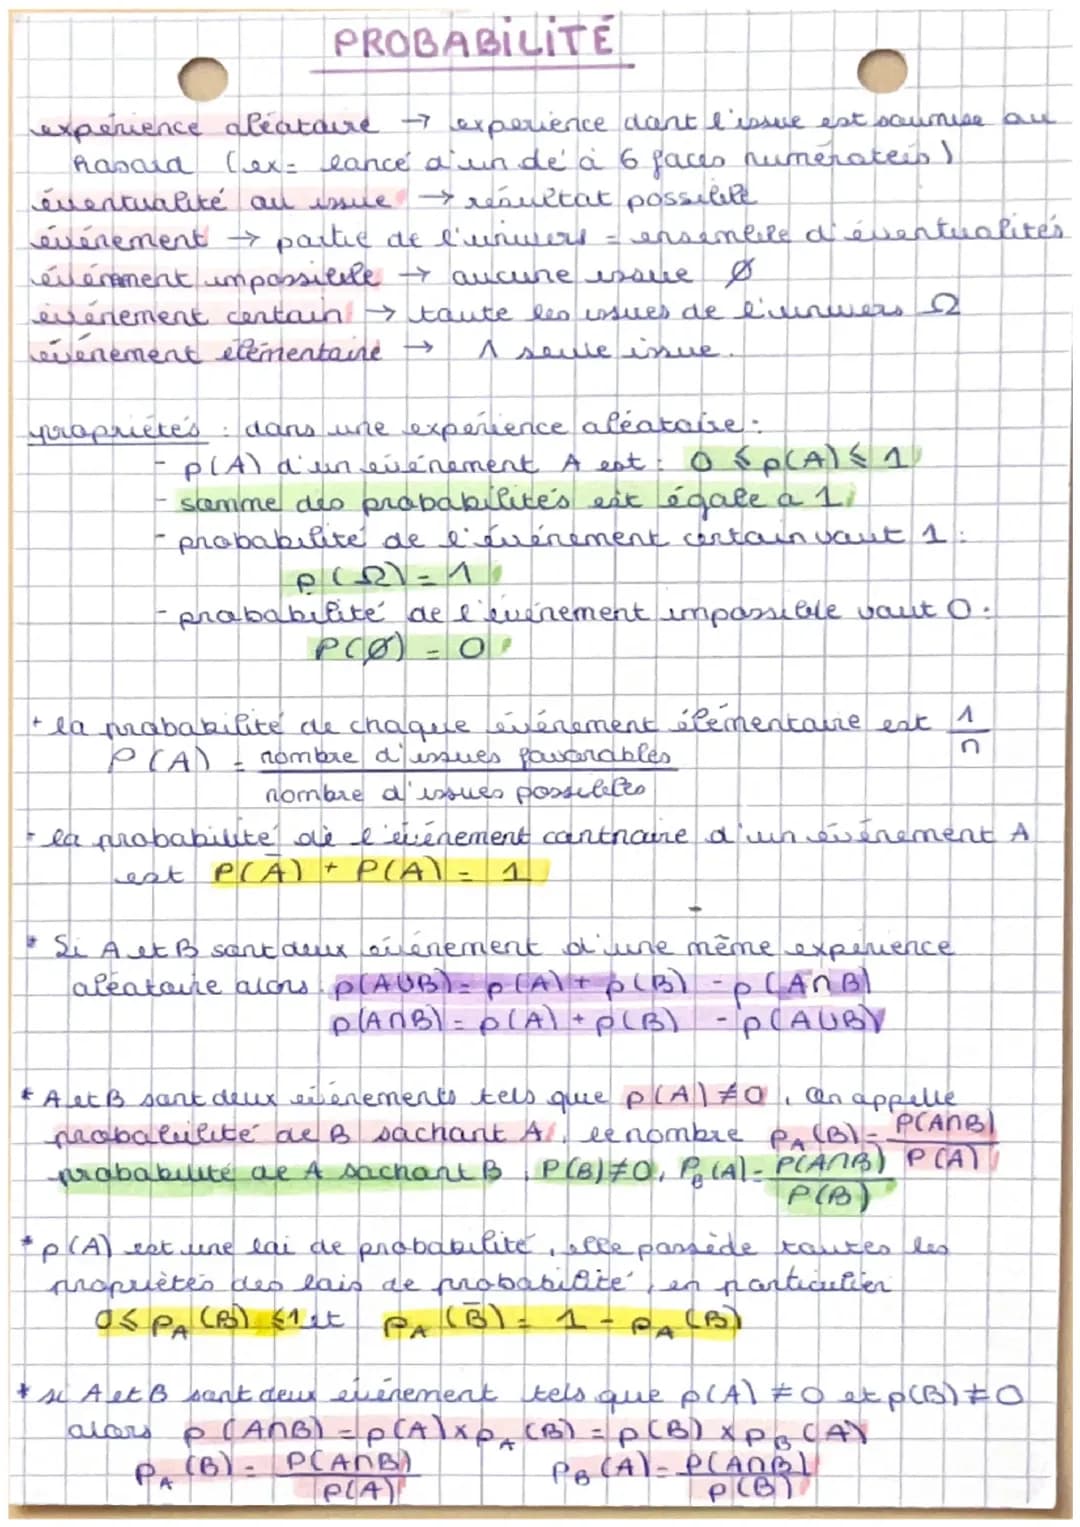 PROBABILITÉ
expérience aléatoire → experience dont l'issue est soumise au
hasard (ex= lancé d'un dé à 6 faces numéroteés)
éventualité ou issue → résultat possible
événement → partie de l'univers = ensemble d'éventualités
événement impossible → aucune issue ∅
événement certain → toute les issues de l'univers Ω
événement élémentaire → 1 seule issue.
propriétés : dans une expérience aléatoire :
- p(A) d'un événement A est : 0 ≤ p(A) ≤ 1
- somme des probabilités est égale a 1
- probabilité de l'événement certain vaut 1 :
p(Ω) = 1
- probabilité de l'événement impossible vaut 0 :
P(∅) = 0
+ la probabilité de chaque événement élémentaire est 1/n
P(A) = nombre d'issues favorables / nombre d'issues possibles
- la probabilité de l'événement contraire d'un événement A
est P(Ā) + P(A) = 1
* Si A et B sont deux événement d'une même expérience
aléatoire alors : p(A∪B) = p(A) + p(B) - p(A∩B)
p(A∩B) = p(A) + p(B) - p(A∪B)
* A et B sont deux événements tels que p(A) ≠ 0, on appelle
probabilité de B sachant A, le nombre p_A(B) = P(A∩B) / P(A)
probabilité de A sachant B, P(B) ≠ 0, P_B(A) = P(A∩B) / P(B)
* p(A) est une loi de probabilité, elle possède toutes les
propriètés des lois de probabilité, en particulier
0 ≤ p_A(B) ≤ 1 et p_A(B̄) = 1 - p_A(B)
* si A et B sont deux événement tels que p(A) ≠ 0 et p(B) ≠ 0
alors p(A∩B) = p(A) × p_A(B) = p(B) × p_B(A)
p_A(B) = P(A∩B) / p(A) p_B(A) = P(A∩B) / p(B)